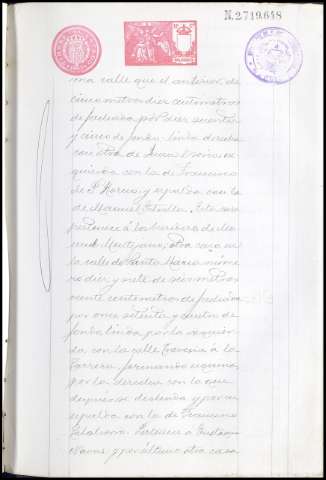 N. 2.719.648
una calle que el anterior, de
cinco metros diez centimetros
de fachada por diez y
y cinco de fondo linda derecha
con otra de Juan
quierda con la de Francisco
de P. y espalda con la
de Manuel Esta casa
pertenece á la herencia de
otra casa en la
calle de Santa Maria núme
ro diez y siete de seis metros
veinte centimetros de fachada
por once setenta y cuatro de
fondo linda por la izquier
da con la calle Travesia á la
Carrera, formando esquina,
por la derecha con la que
despues se deslinda y por su
espalda con la de Francisco
Pertenece á
y por último otra casa